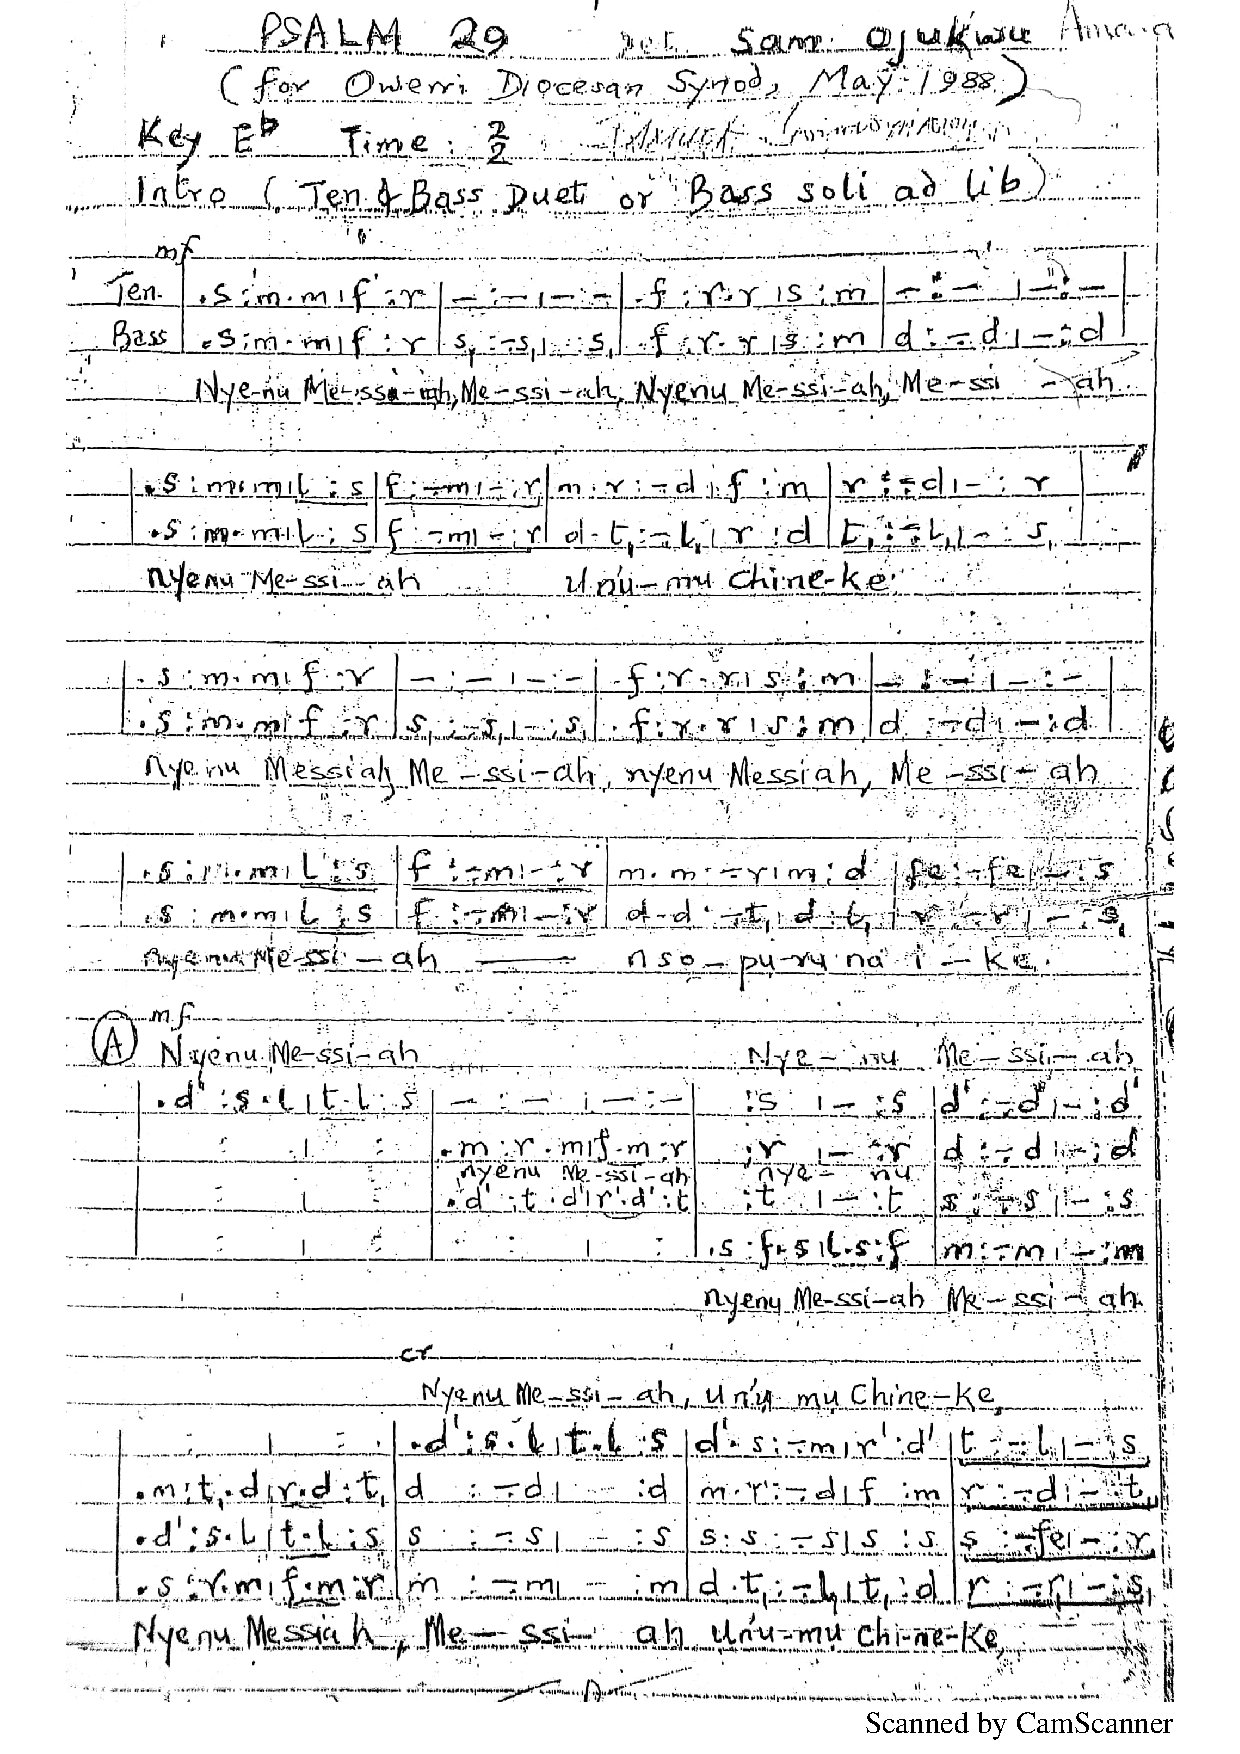 PSALM 29 Sam Ojukwu Amana
(for Owerri Diocesan Synod, May 1988)
Key E♭ Time: 2/2
Intro (Ten & Bass Duet or Bass soli ad lib)
mf
Ten. | .s:m.m|f:r | –:–|–:– | .f:r.r|s:m | –:–|–:– |
Bass | .s:m.m|f:r | s,:–s,|–:s, | .f:r.r|s:m | d:–d|–:d |
Nyenu Me-ssi-ah, Me-ssi-ah, Nyenu Me-ssi-ah, Me-ssi-ah.
| .s:m.m|L:s | f:–m|–:r | m.r:–d|f:m | r:–d|–:r |
| .s:m.m|L:s | f:–m|–:r | d.t,:–L,|r:d | t,:–L,|–:s, |
Nyenu Me-ssi-ah Unu-mu Chine-ke
| .s:m.m|f:r | –:–|–:– | .f:r.r|s:m | –:–|–:– |
| .s:m.m|f:r | s,:–s,|–:s, | .f:r.r|s:m | d:–d|–:d |
Nyenu Messiah, Me-ssi-ah, nyenu Messiah, Me-ssi-ah
| .s:m.m|L:s | f:–m|–:r | m.m:–r|m:d | fe:–fe|–:s |
| .s:m.m|L:s | f:–m|–:r | d.d:–t,|d:t, | r:–r|–:s, |
nyenu Me-ssi-ah — nso-pu-ru na i-ke.
mf
(A) Nyenu Me-ssi-ah Nye-nu Me-ssi-ah
| .d':s.l|t.l:s | –:–|–:– | :s|–:s | d':–d'|–:d'
| : | : | .m:r.m|f.m:r | :r|–:r | d:–d|–:d
nyenu Me-ssi-ah nye-nu
| : | : | .d':t.d'|r'.d':t | :t|–:t | s:–s|–:s
| : | : | : | : | .s:f.s|l.s:f | m:–m|–:m
nyenu Me-ssi-ah Me-ssi-ah.
cr
Nyenu Me-ssi-ah, Unu mu Chine-ke,
| : | : | .d':s.l|t.l:s | d'.s:–m|r':d' | t:–l|–:s
| .m:t,.d|r.d:t, | d:–d|–:d | m.r:–d|f:m | r:–d|–:t,
| .d':s.l|t.l:s | s:–s|–:s | s.s:–s|s:s | s:–fe|–:r
| .s:r.m|f.m:r | m:–m|–:m | d.t,:–l,|t,:d | r:–r|–:s,
Nyenu Messiah, Me-ssi-ah Unu-mu Chi-ne-ke,
Scanned by CamScanner